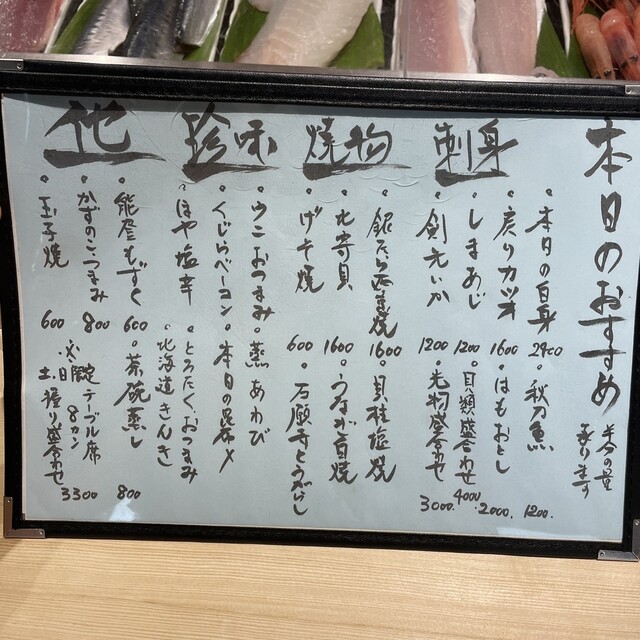 本日のおすすめ
半分の量
承ります
刺身
・本日の白身 2400
・秋刀魚 1200
・戻りカツオ 1600
・はもおとし 2000
・しまあじ 1200
・貝類盛合わせ 4000
・剣先いか 1200
・光物盛合わせ 3000
焼物
・銀だら西京焼 1600
・貝柱塩焼
・北寄貝 1600
・うなぎ白焼
・げそ焼 600
・石願寺とうがらし
珍味
・ウニおつまみ
・蒸あわび
・くじらベーコン
・本日の昆布〆
・ほや塩辛
・とろたくおつまみ
・北海道きんき
他
・能登もずく 600
・茶碗蒸し 800
・かずのこつまみ 800
・玉子焼 600
※限定テーブル席
土日 握り盛合わせ 8カン 3300